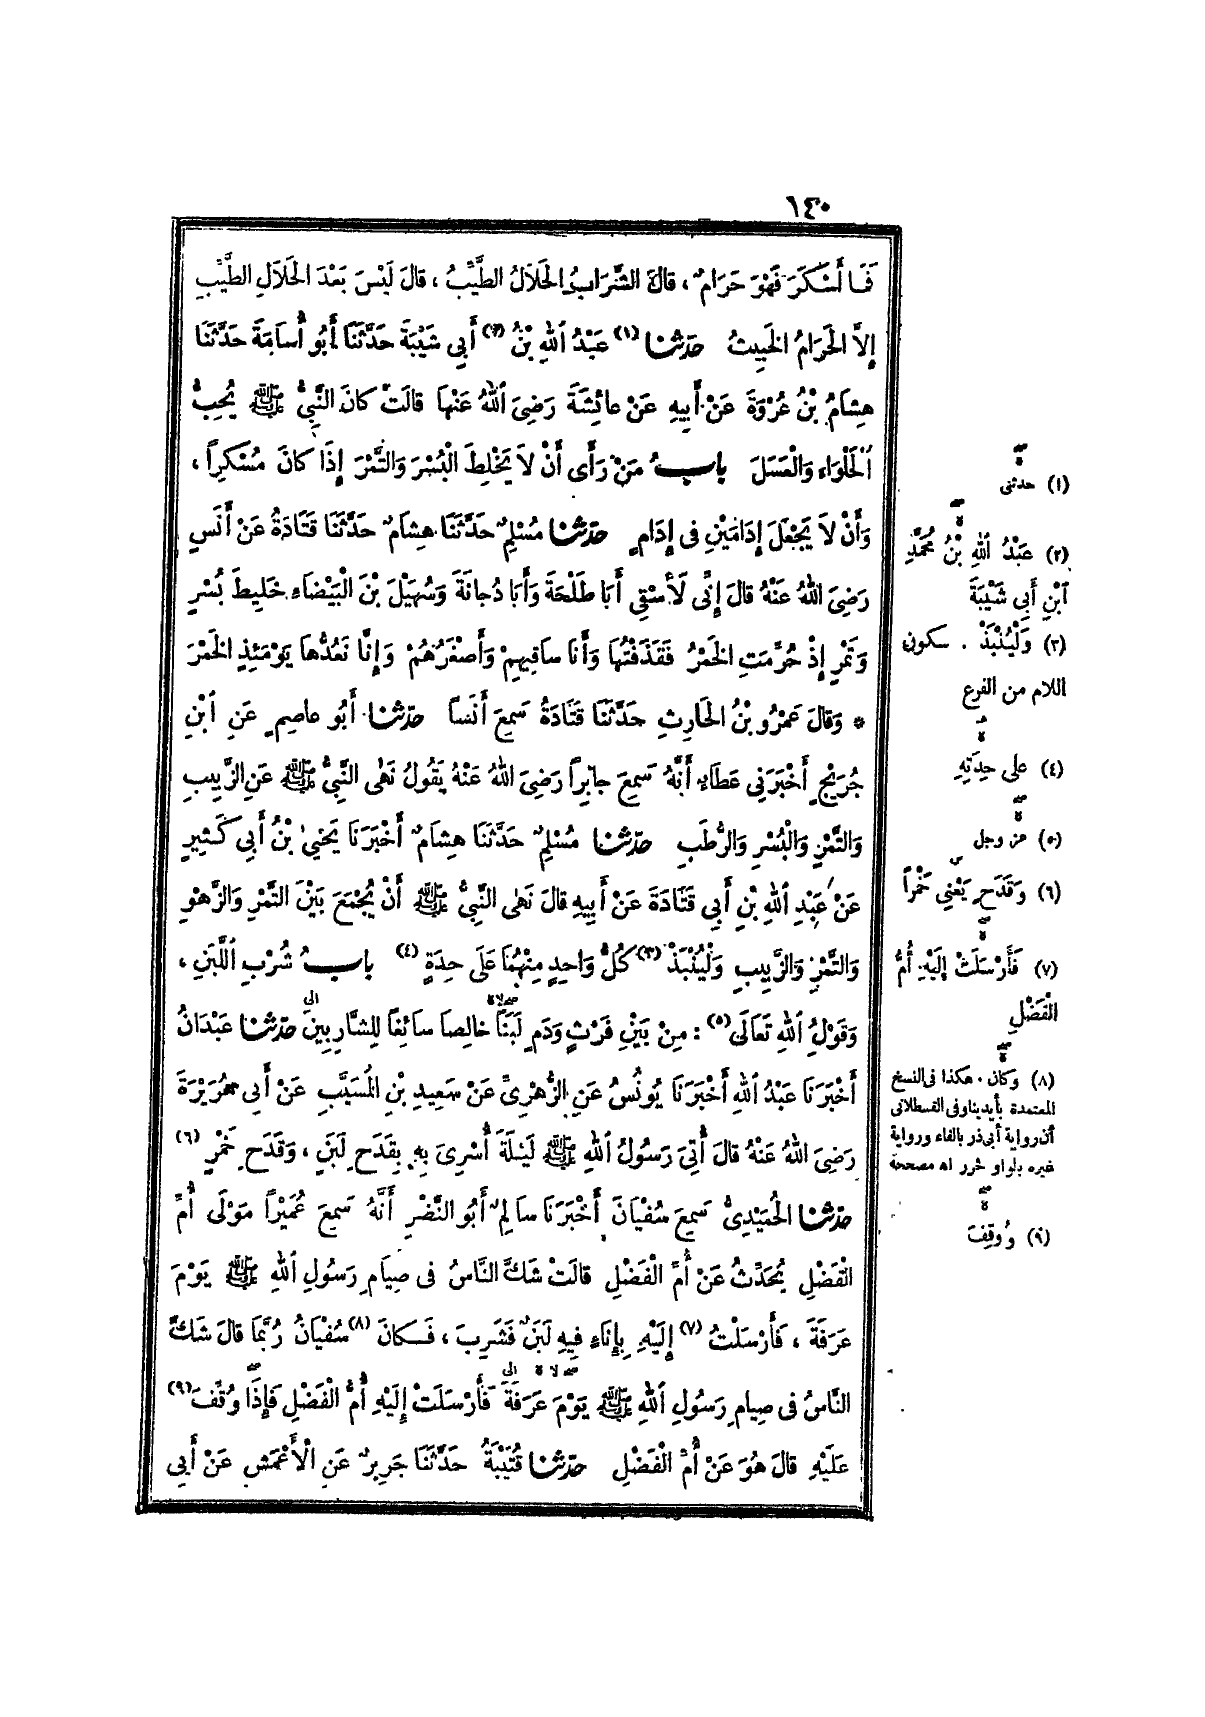 ١٤٠
فَمَا أَسْكَرَ فَهُوَ حَرَامٌ ، قَالَ الشَّرَابُ الحَلاَلُ الطَّيِّبُ ، قَالَ لَيْسَ بَعْدَ الحَلاَلِ الطَّيِّبِ
إِلاَّ الحَرَامُ الخَبِيثُ حَدَّثَنَا (١) عَبْدُ اللهِ بْنُ (٢) أَبِي شَيْبَةَ حَدَّثَنَا أَبُو أُسَامَةَ حَدَّثَنَا
هِشَامُ بْنُ عُرْوَةَ عَنْ أَبِيهِ عَنْ عَائِشَةَ رَضِيَ اللهُ عَنْهَا قَالَتْ كَانَ النَّبِيُّ ﷺ يُحِبُّ
الْحَلْوَاءَ وَالْعَسَلَ بَابُ مَنْ رَأَى أَنْ لاَ يَخْلِطَ الْبُسْرَ وَالتَّمْرَ إِذَا كَانَ مُسْكِرًا ،
وَأَنْ لاَ يَجْعَلَ إِدَامَيْنِ فِي إِدَامٍ حَدَّثَنَا مُسْلِمٌ حَدَّثَنَا هِشَامٌ حَدَّثَنَا قَتَادَةُ عَنْ أَنَسٍ
رَضِيَ اللهُ عَنْهُ قَالَ إِنِّي لَأَسْقِي أَبَا طَلْحَةَ وَأَبَا دُجَانَةَ وَسُهَيْلَ بْنَ الْبَيْضَاءِ خَلِيطَ بُسْرٍ
وَتَمْرٍ إِذْ حُرِّمَتِ الخَمْرُ فَقَذَفْتُهَا وَأَنَا سَاقِيهِمْ وَأَصْغَرُهُمْ وَإِنَّا نَعُدُّهَا يَوْمَئِذٍ الخَمْرَ
* وَقَالَ عَمْرُو بْنُ الحَارِثِ حَدَّثَنَا قَتَادَةُ سَمِعَ أَنَسًا حَدَّثَنَا أَبُو عَاصِمٍ عَنِ ابْنِ
جُرَيْجٍ أَخْبَرَنِي عَطَاءٌ أَنَّهُ سَمِعَ جَابِرًا رَضِيَ اللهُ عَنْهُ يَقُولُ نَهَى النَّبِيُّ ﷺ عَنِ الزَّبِيبِ
وَالتَّمْرِ وَالْبُسْرِ وَالرُّطَبِ حَدَّثَنَا مُسْلِمٌ حَدَّثَنَا هِشَامٌ أَخْبَرَنَا يَحْيَى بْنُ أَبِي كَثِيرٍ
عَنْ عَبْدِ اللهِ بْنِ أَبِي قَتَادَةَ عَنْ أَبِيهِ قَالَ نَهَى النَّبِيُّ ﷺ أَنْ يُجْمَعَ بَيْنَ التَّمْرِ وَالزَّهْوِ
وَالتَّمْرِ وَالزَّبِيبِ وَلْيُنْبَذْ (٣) كُلُّ وَاحِدٍ مِنْهُمَا عَلَى حِدَةٍ (٤) بَابُ شُرْبِ اللَّبَنِ ،
وَقَوْلُ اللهِ تَعَالَى (٥) : مِنْ بَيْنِ فَرْثٍ وَدَمٍ لَبَنًا خَالِصًا سَائِغًا لِلشَّارِبِينَ حَدَّثَنَا عَبْدَانُ
أَخْبَرَنَا عَبْدُ اللهِ أَخْبَرَنَا يُونُسُ عَنِ الزُّهْرِيِّ عَنْ سَعِيدِ بْنِ الْمُسَيَّبِ عَنْ أَبِي هُرَيْرَةَ
رَضِيَ اللهُ عَنْهُ قَالَ أُتِيَ رَسُولُ اللهِ ﷺ لَيْلَةَ أُسْرِيَ بِهِ بِقَدَحِ لَبَنٍ ، وَقَدَحِ خَمْرٍ (٦)
حَدَّثَنَا الحُمَيْدِيُّ سَمِعَ سُفْيَانَ أَخْبَرَنَا سَالِمٌ أَبُو النَّضْرِ أَنَّهُ سَمِعَ عُمَيْرًا مَوْلَى أُمِّ
الْفَضْلِ يُحَدِّثُ عَنْ أُمِّ الْفَضْلِ قَالَتْ شَكَّ النَّاسُ فِي صِيَامِ رَسُولِ اللهِ ﷺ يَوْمَ
عَرَفَةَ ، فَأَرْسَلْتُ (٧) إِلَيْهِ بِإِنَاءٍ فِيهِ لَبَنٌ فَشَرِبَ ، فَكَانَ (٨) سُفْيَانُ رُبَّمَا قَالَ شَكَّ
النَّاسُ فِي صِيَامِ رَسُولِ اللهِ ﷺ يَوْمَ عَرَفَةَ فَأَرْسَلَتْ إِلَيْهِ أُمُّ الْفَضْلِ فَإِذَا وُقِّفَ (٩)
عَلَيْهِ قَالَ هُوَ عَنْ أُمِّ الْفَضْلِ حَدَّثَنَا قُتَيْبَةُ حَدَّثَنَا جَرِيرٌ عَنِ الْأَعْمَشِ عَنْ أَبِي
(١) حدثني
(٢) عَبْدُ اللهِ بْنُ مُحَمَّدِ
ابْنِ أَبِي شَيْبَةَ
(٣) وَلْيُنْبَذْ . سكون
اللام من الفرع
(٤) على حِدَتِهِ
(٥) عز وجل
(٦) وَقَدَحٍ يَعْنِي خَمْرًا
(٧) فَأَرْسَلَتْ إِلَيْهِ أُمُّ
الْفَضْلِ
(٨) وكان . هكذا في النسخ
المعتمدة بأيدينا وفي القسطلاني
أن رواية أبي ذر بالفاء ورواية
غيره بالواو حُرر اه مصححة
(٩) وُوقِفَ